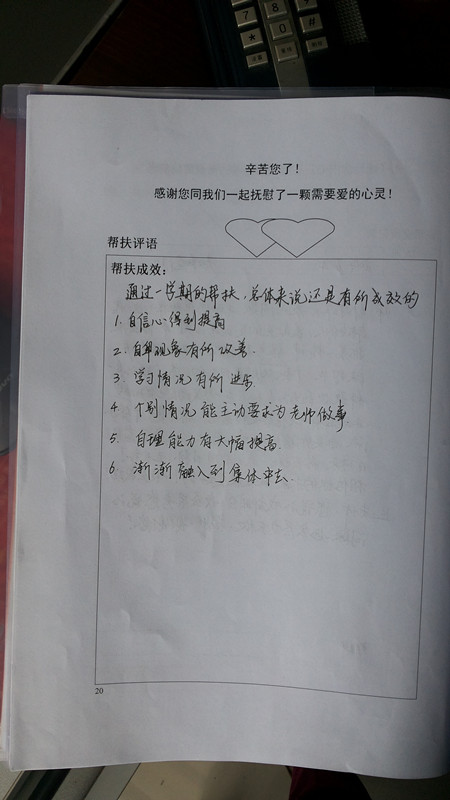 辛苦您了！
感谢您同我们一起抚慰了一颗需要爱的心灵！
帮扶评语
帮扶成效：
通过一学期的帮扶，总体来说还是有所成效的
1. 自信心得到提高
2. 自卑现象有所改善.
3. 学习情况有所进步
4. 个别情况能主动要求为老师做事.
5. 自理能力有大幅提高.
6. 渐渐融入到集体中去.
20